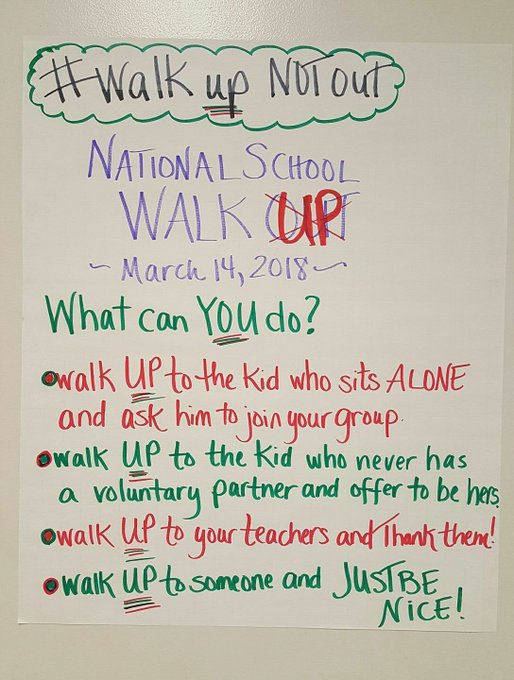 #Walk up NOT out
NATIONAL SCHOOL
WALK OUT UP
~ March 14, 2018 ~
What can YOU do?
walk UP to the Kid who sits ALONE
and ask him to join your group.
walk UP to the Kid who never has
a voluntary partner and offer to be hers.
walk UP to your teachers and Thank them!
walk UP to someone and JUST BE
NiCE!